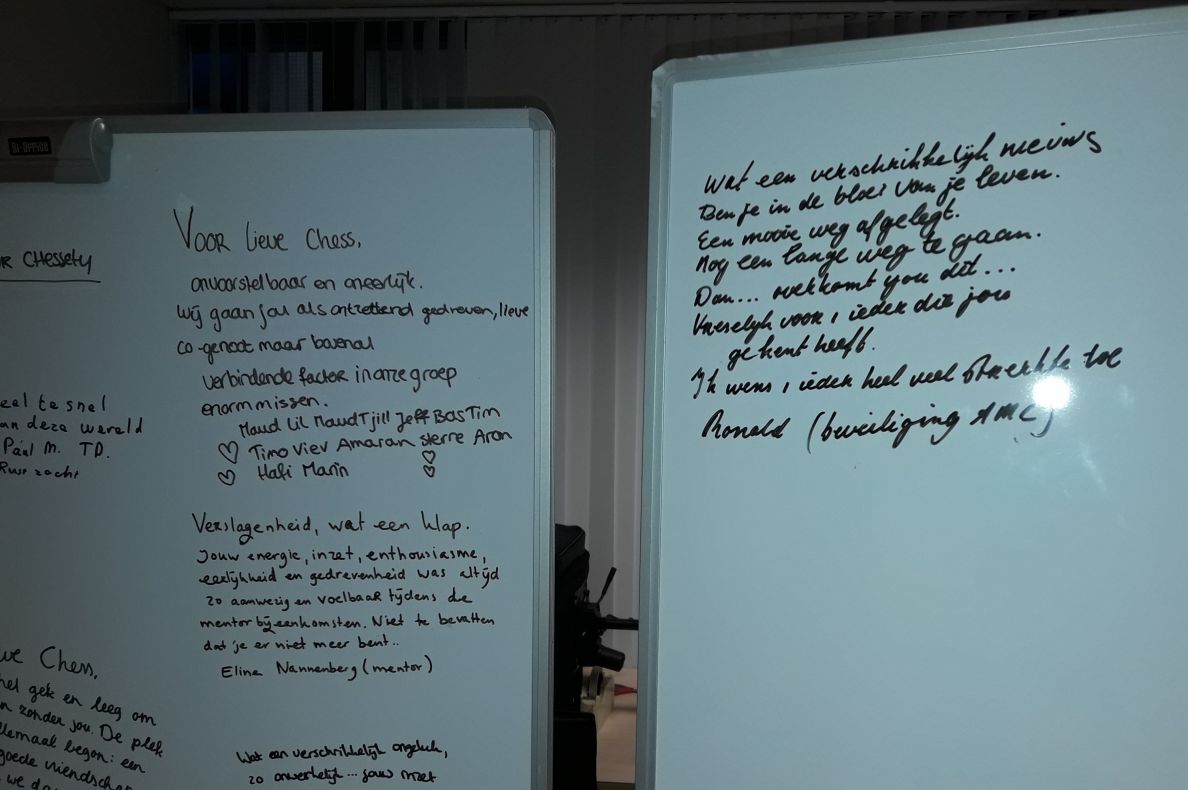 BI-OFFICE
CHESSETY
eel te snel
an deze wereld
Paul M. TD.
Rust zacht
we Chess,
gek en leeg om
n zonder jou. De plek
llemaal begon: een
goede vriendschap
we da
Voor lieve Chess,
onvoorstelbaar en oneerlijk.
wij gaan jou als ontzettend gedreven, lieve
co-genoot maar bovenal
verbindende factor in onze groep
enorm missen.
Maud Lil Maud Tjill Jeff Bas Tim
Timo Viev Amaran sterre Aron
Hafi Marin
Verslagenheid, wat een klap.
Jouw energie, inzet, enthousiasme,
eerlijkheid en gedrevenheid was altijd
zo aanwezig en voelbaar tijdens de
mentorbijeenkomsten. Niet te bevatten
dat je er niet meer bent..
Eline Nannenberg (mentor)
Wat een verschrikkelijk ongeluk,
zo onwerkelijk... jouw inzet
Wat een verschrikkelijk nieuws
Ben je in de bloei van je leven.
Een mooie weg afgelegt.
Nog een lange weg te gaan.
Dan... overkomt you dit...
Vreselijk voor ieder die jou
gekent heeft.
Ik wens ieder heel veel sterkte toe
Ronald (beveiliging AMC)